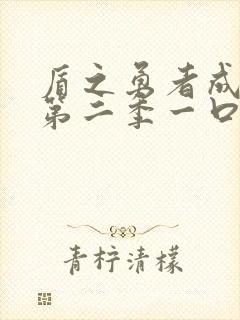 盾之勇者成
第二季一口
青柠清檬